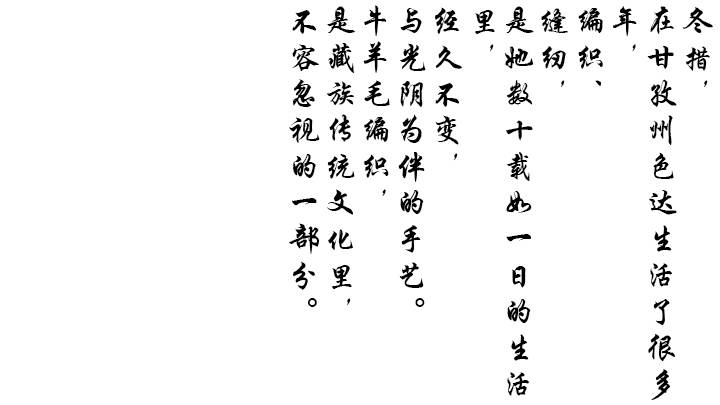 冬措，
在甘孜州色达生活了很多
年，
编织、
缝纫，
是她数十载如一日的生活
里，
经久不变，
与光阴为伴的手艺。
牛羊毛编织，
是藏族传统文化里，
不容忽视的一部分。